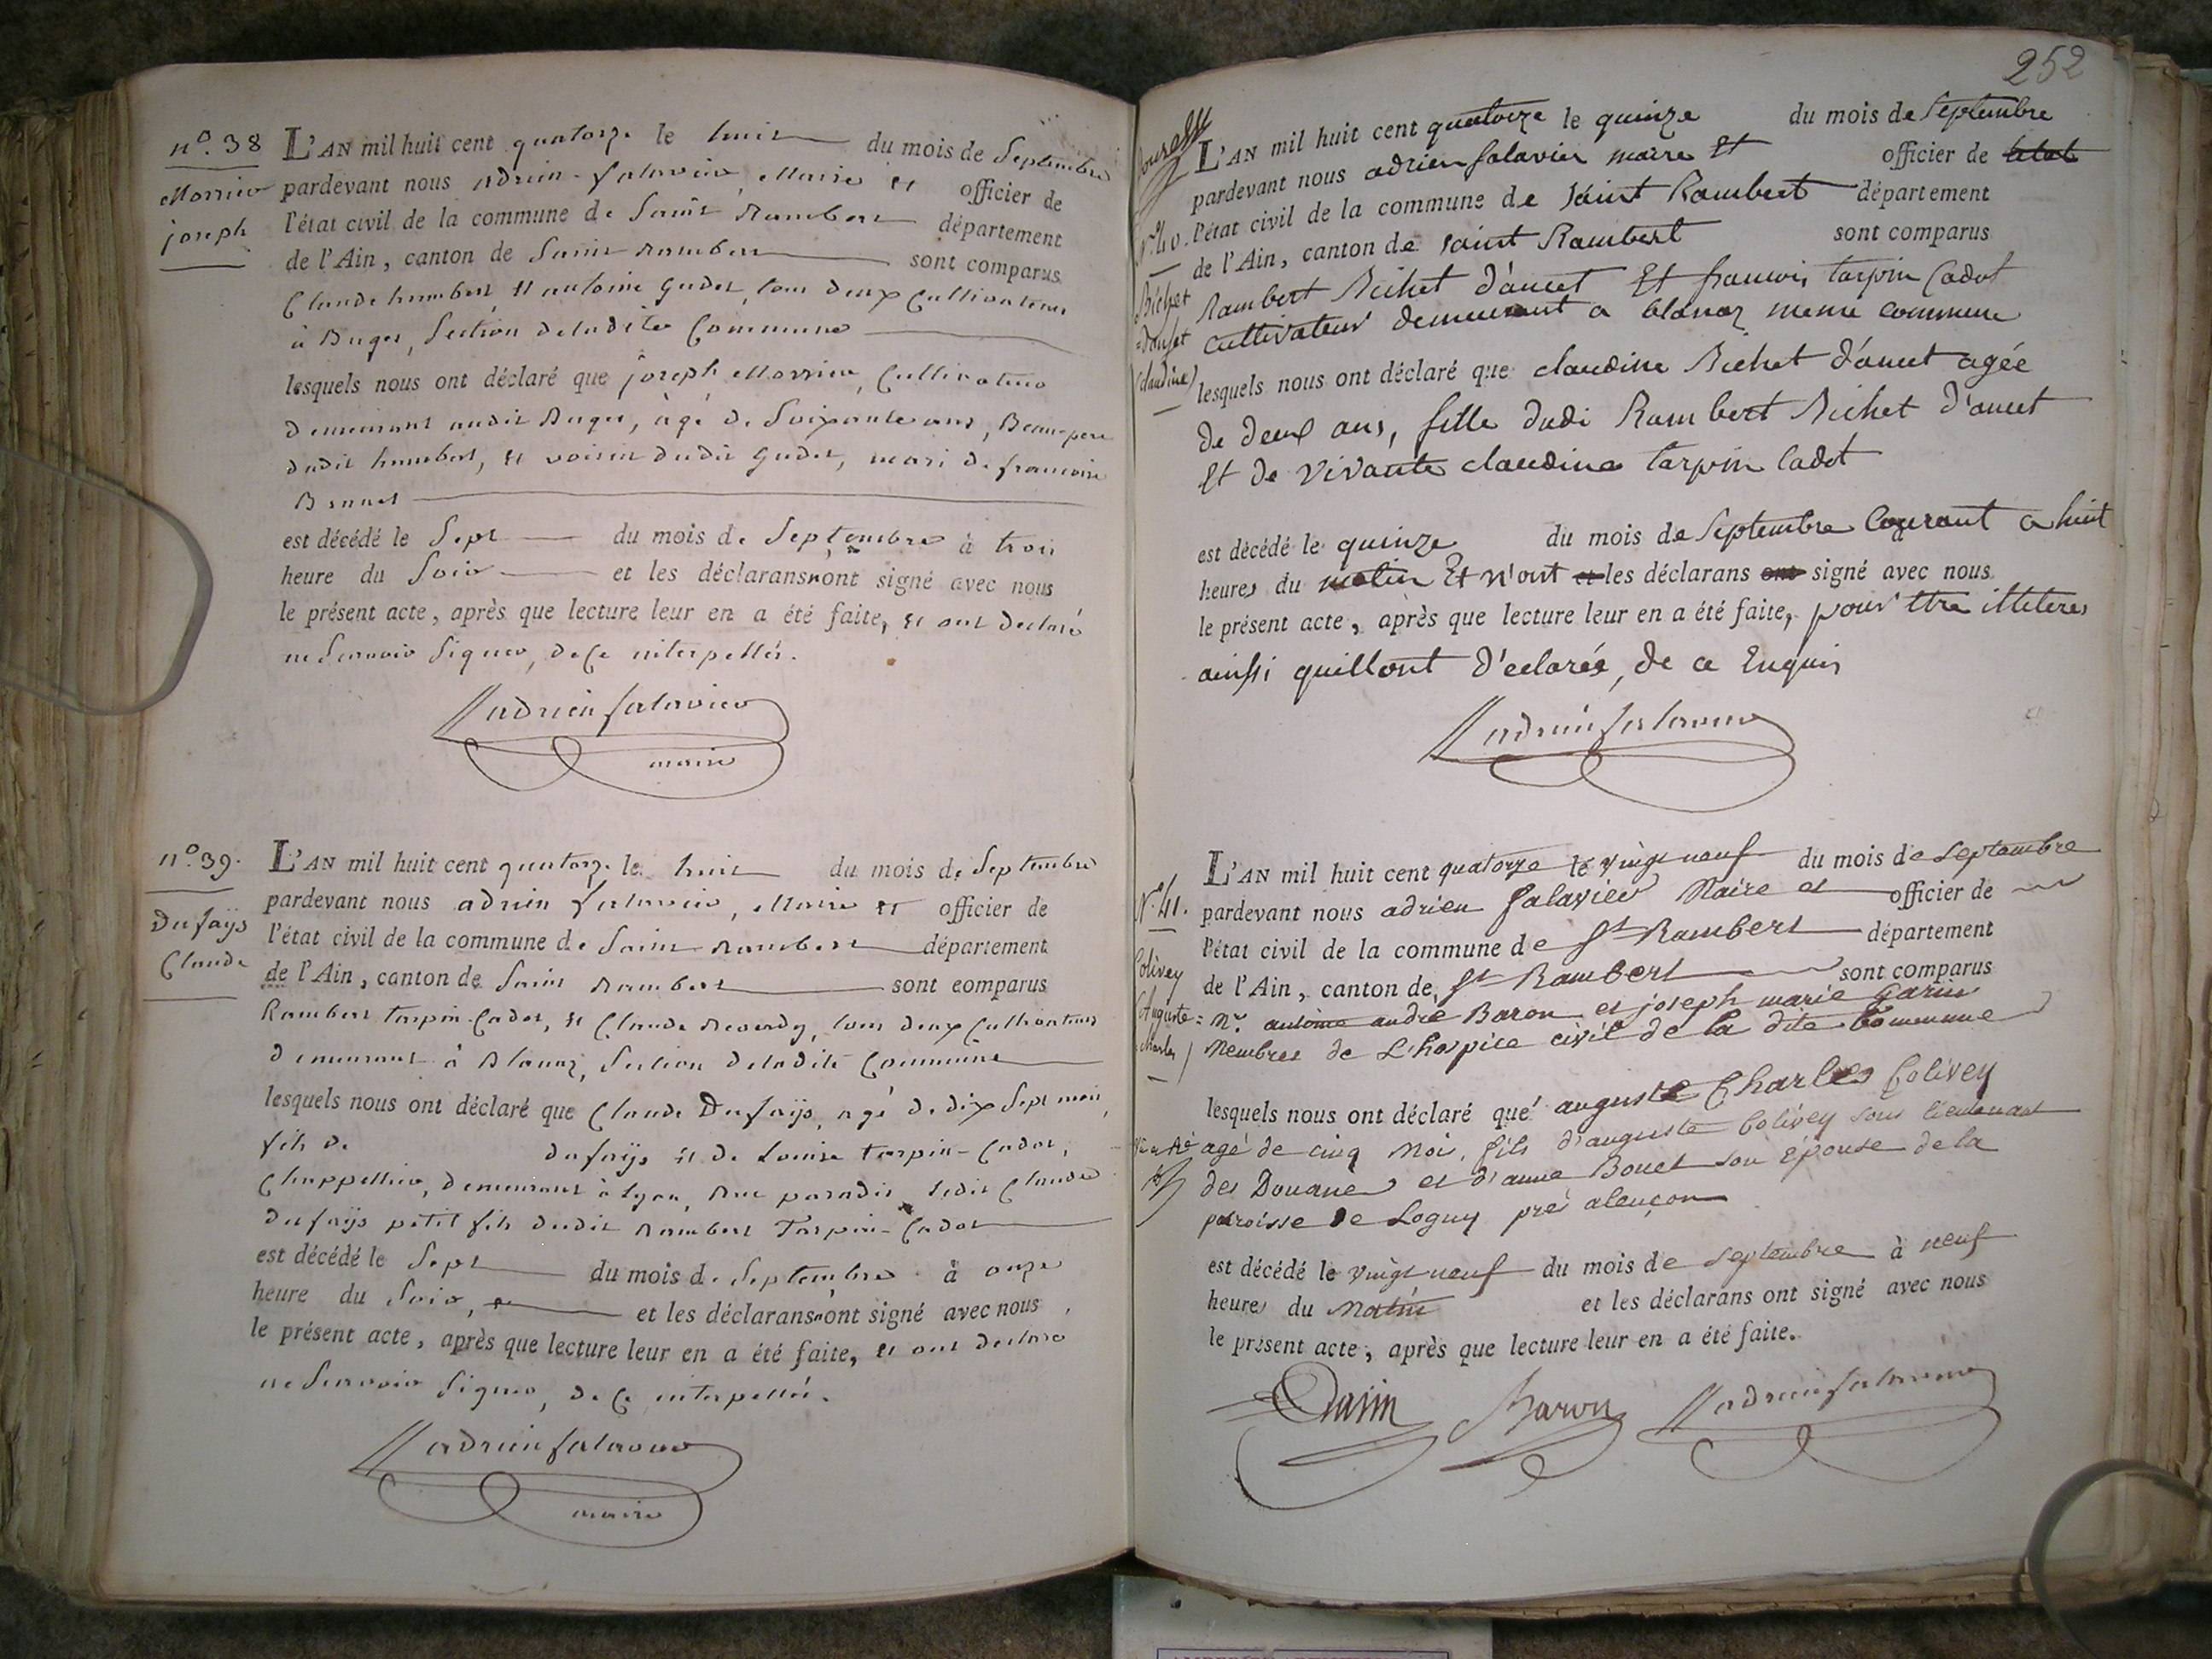 n.º 38
Morrier
joseph
L'AN mil huit cent quatorze le huit du mois de Septembre
pardevant nous adrien falavier, Maire et officier de
l'état civil de la commune de Saint Rambert département
de l'Ain, canton de Saint Rambert sont comparus
Claude humbert et antoine Gudet, tous deux Cultivateurs
à Buges, Section de ladite Commune
lesquels nous ont déclaré que joseph Morrier, Cultivateur
demeurant audit Buges, àgé de Soixante ans, Beaupere
dudit humbert, et voisin dudit Gudet, mari de francoise
Bonnet
est décédé le Sept du mois de Septembre à trois
heure du Soir et les déclarans n'ont signé avec nous
le présent acte, après que lecture leur en a été faite, et ont declaré
ne Scavoir Signer, de Ce interpellés.
adrien falavier
maire
n.º 39.
Dufaijs
Claude
L'AN mil huit cent quatorze le huit du mois de Septembre
pardevant nous adrien falavier, Maire et officier de
l'état civil de la commune de Saint Rambert département
de l'Ain, canton de Saint Rambert sont comparus
Rambert Tarpin-Cadot, et Claude Reverdy, tous deux Cultivateurs
demeurant à Blanaz, Section de ladite Commune
lesquels nous ont déclaré que Claude Dufaijs, agé de dix Sept mois,
fils de dufaijs et de Louise Tarpin-Cadot,
Chappellier, demeurant à Lyon, Rue paradis, Ledit Claude
dufaijs petit fils dudit Rambert Tarpin-Cadot
est décédé le Sept du mois de Septembre à onze
heure du Soir, et les déclarans n'ont signé avec nous
le présent acte, après que lecture leur en a été faite, et ont declaré
ne Scavoir Signer, de Ce interpellés.
adrien falavier
maire
252
N.º 40.
Bichet
=d'ouset
(claudine)
L'AN mil huit cent quatorze le quinze du mois de Septembre
pardevant nous adrien falavier maire Et officier de letat
l'état civil de la commune de saint Rambert département
de l'Ain, canton de saint Rambert sont comparus
Rambert Bichet d'oucet Et francois tarpin Cadot
cultivateur demeurant a blanaz meme commune
lesquels nous ont déclaré que claudine Bichet d'oucet agée
de deux ans, fille dudi Rambert Bichet d'oucet
Et de vivante claudine tarpin Cadot
est décédé le quinze du mois de Septembre Courant a huit
heures du matin Et n'ont et les déclarans ont signé avec nous
le présent acte, après que lecture leur en a été faite, pour ttre illiteres
ainssi quillont d'eclarée, de ce Enquis
adrien falavier
N.º 41.
Colivey
(Auguste=
charles)
L'AN mil huit cent quatorze le vingt neuf du mois de septembre
pardevant nous adrien falavier Maire et officier de
l'état civil de la commune de St Rambert département
de l'Ain, canton de St Rambert sont comparus
Mr. antoine andré Baron et joseph marie Garin
Membres de L'hospice civil de la dite Commune
lesquels nous ont déclaré que auguste Charles Colivey
agé de cinq Moi, fils d'auguste Colivey sous lieutenant
des Douanes et d'anne Bouet son épouse de la
paroisse de Loguy pré alençon
est décédé le vingt neuf du mois de septembre à neuf
heures du Matin et les déclarans ont signé avec nous
le présent acte, après que lecture leur en a été faite.
Garin Baron adrien falavier